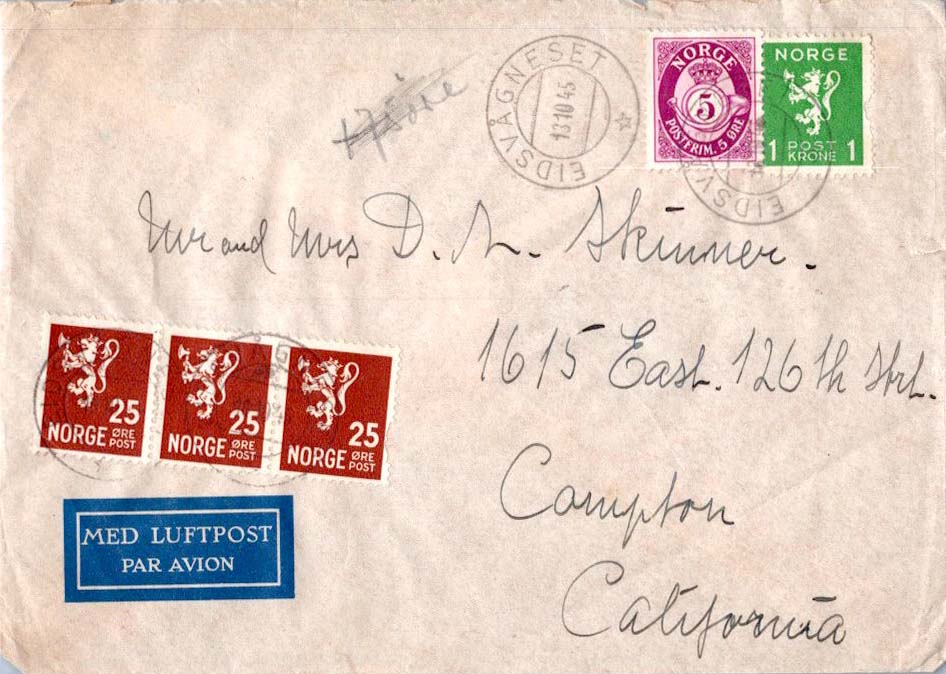 EIDSVÅGNESET
13 10 45
NORGE
5
POSTFRIM. 5 ØRE
NORGE
1 POST KRONE 1
EIDSV
Mr and Mrs D. L. Skinner.
1615 East. 126 th Strt.
Compton
California
25
NORGE ØRE POST
25
NORGE ØRE POST
25
NORGE ØRE POST
MED LUFTPOST
PAR AVION